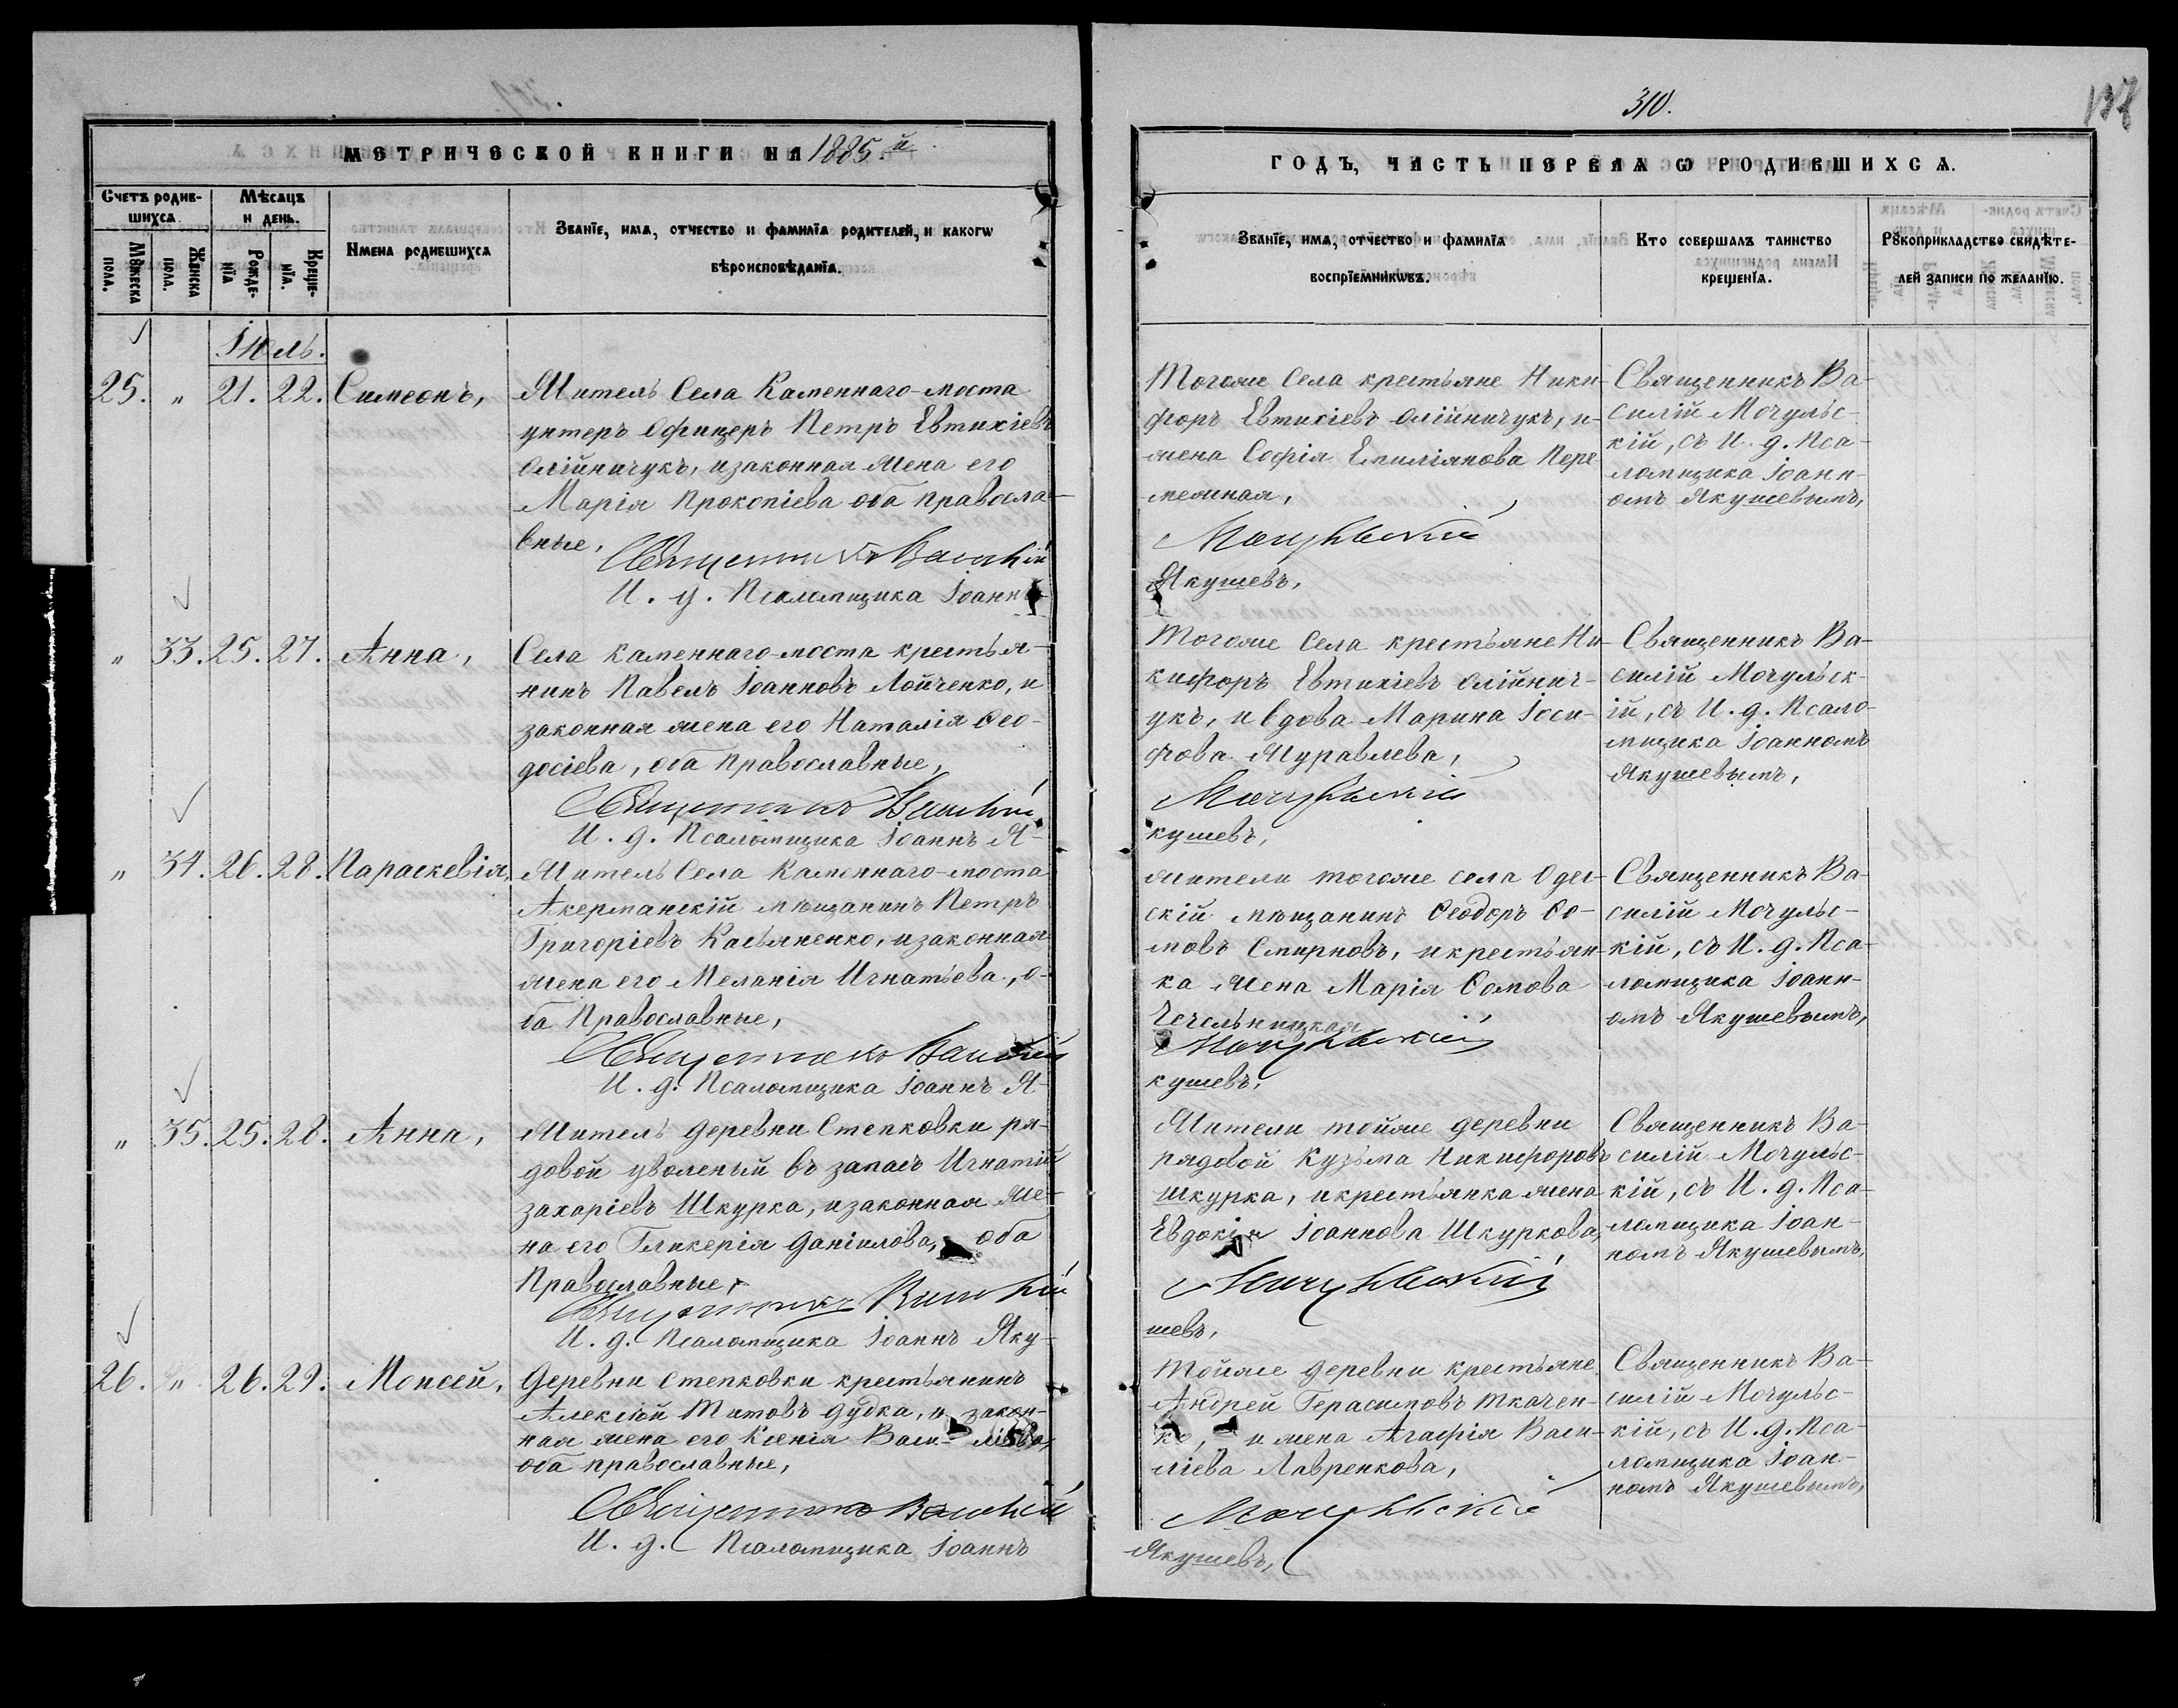 310.
137
МЕТРИЧЕСКОЙ КНИГИ НА 1885.й
ГОДЪ, ЧАСТЬ ПЕРВАѦ Ѡ РОДИВШИХСѦ.
Счетъ родив-
шихсѧ
Мꙋжеска
пола.
Женска
пола.
Мѣсѧцъ
и день.
Рожде-
нїѧ
Креще-
нїѧ.
Имена родившихсѧ
Званїе, имѧ, отчество и фамилїѧ родителей, и какогѡ
вѣроисповѣданїѧ.
Званїе, имѧ, отчество и фамилїѧ
воспрїемникѡвъ.
Кто совершалъ таинство
крещенїѧ.
Рꙋкоприкладство свидѣте-
лей записи по желанїю.
Іюль.
25. " 21. 22. Симеонъ,
Житель Села Каменнаго-моста
унтеръ Офицеръ Петръ Евтихіевъ
Олійничукъ, изаконная Жена его
Марія Прокопіева оба правосла-
вные,
Священникъ Василій
И. д. Псаломщика Іоаннъ
Тогоже Села крестьяне Ники-
форъ Евтихіевъ Олійничукъ, и-
жена Софія Емиліянова Пере-
межная,
Мочульскій
Якушевъ,
Священникъ Ва-
силій Мочульс-
кій, съ И. д. Пса-
ломщика Іоанн-
омъ Якушевымъ,
" 33. 25. 27. Анна,
Села Каменнаго-моста крестья-
нинъ Павелъ Іоанновъ Лойченко, и
законная жена его Наталія Ѳео-
досіева, оба Православные,
Священникъ Василій
И. д. Псаломщика Іоаннъ Я-
Тогоже Села крестьяне Ни-
кифоръ Евтихіевъ Олійнич-
укъ, и вдова Марина Іоси-
фова Журавлева,
Мочульскій
кушевъ,
Священникъ Ва-
силій Мочульск-
ій, съ И. д. Псало-
мщика Іоанномъ
Якушевымъ,
" 34. 26. 28. Параскевія,
Житель Села Каменнаго-моста
Акерманскій мѣщанинъ Петръ
Григоріевъ Касьяненко, изаконная
жена его Меланія Игнатьева, о-
ба Православные,
Священникъ Василій
И. д. Псаломщика Іоаннъ Я-
жители тогоже села Одес-
скій мѣщанинъ Ѳеодоръ Ѳо-
мовъ Смирновъ, икрестьян-
ка Жена Марія Ѳомова
Чечельницкая
Мочульскій
кушевъ,
Священникъ Ва-
силій Мочульс-
кій, съ И. д. Пса-
ломщика Іоанн-
омъ Якушевымъ,
" 35. 25. 28. Анна,
Житель деревни Степковки ря-
довой уволеный въ запасъ Игнатій
Захаріевъ Шкурка, изаконная Же-
на его Гликерія Даніилова, оба
Православные,
Священникъ Василій
И. д. Псаломщика Іоаннъ Яку-
Жители тойже деревни
рядовой Кузьма Никифоровъ
Шкурка, икрестьянка жена
Евдокія Іоаннова Шкуркова,
Мочульскій
шевъ,
Священникъ Ва-
силій Мочульс-
кій, съ И. д. Пса-
ломщика Іоан-
номъ Якушевымъ,
26. " 26. 29. Моисей,
Деревни Степковки крестьянинъ
Алексѣй Титовъ Дудка, и закон-
ная жена его Ксенія Васи-ліева,
оба православные,
Священникъ Василій
И. д. Псаломщика Іоаннъ
Тойже деревни крестьяне
Андрей Герасимовъ Ткачен-
ко, и жена Агафія Васи-
ліева Лавренкова,
Мочульскій
Якушевъ,
Священникъ Ва-
силій Мочульс-
кій, съ И. д. Пса-
ломщика Іоан-
номъ Якушевымъ,